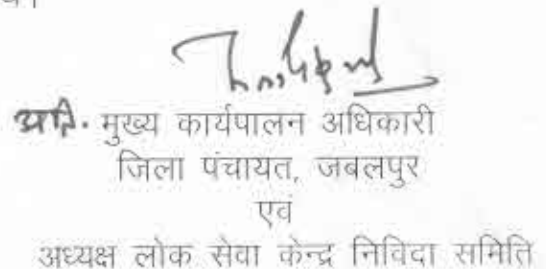 अति. मुख्य कार्यपालन अधिकारी
जिला पंचायत, जबलपुर
एवं
अध्यक्ष लोक सेवा केन्द्र निविदा समिति